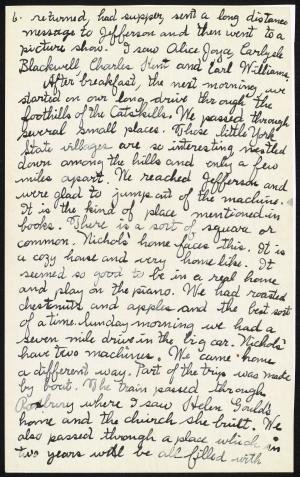 6. returned, had supper, sent a long distance
message to Jefferson and then went to a
picture show. I saw Alice Joyce, Carlyle
Blackwell, Charles Kent and Earl Williams.
After breakfast, the next morning, we
started on our long drive through the
foothills of the Catskills. We passed through
several small places. Those little York
State villages are so interesting nestled
down among the hills and only a few
miles apart. We reached Jefferson and
were glad to jump out of the machine.
It is the kind of place mentioned in
books. There is a sort of square or
common. Nichols' home faces this. It is
a cozy house and very home like. It
seemed so good to be in a real home
and play on the piano. We had roasted
chestnuts and apples and the best sort
of a time. Sunday morning we had a
seven mile drive in the big car. Nichols'
have two machines. We came home
a different way. Part of the trip was made
by boat. The train passed through
Roxbury where I saw Helen Gould's
home and the church she built. We
also passed through a place which in
two years will be all filled with